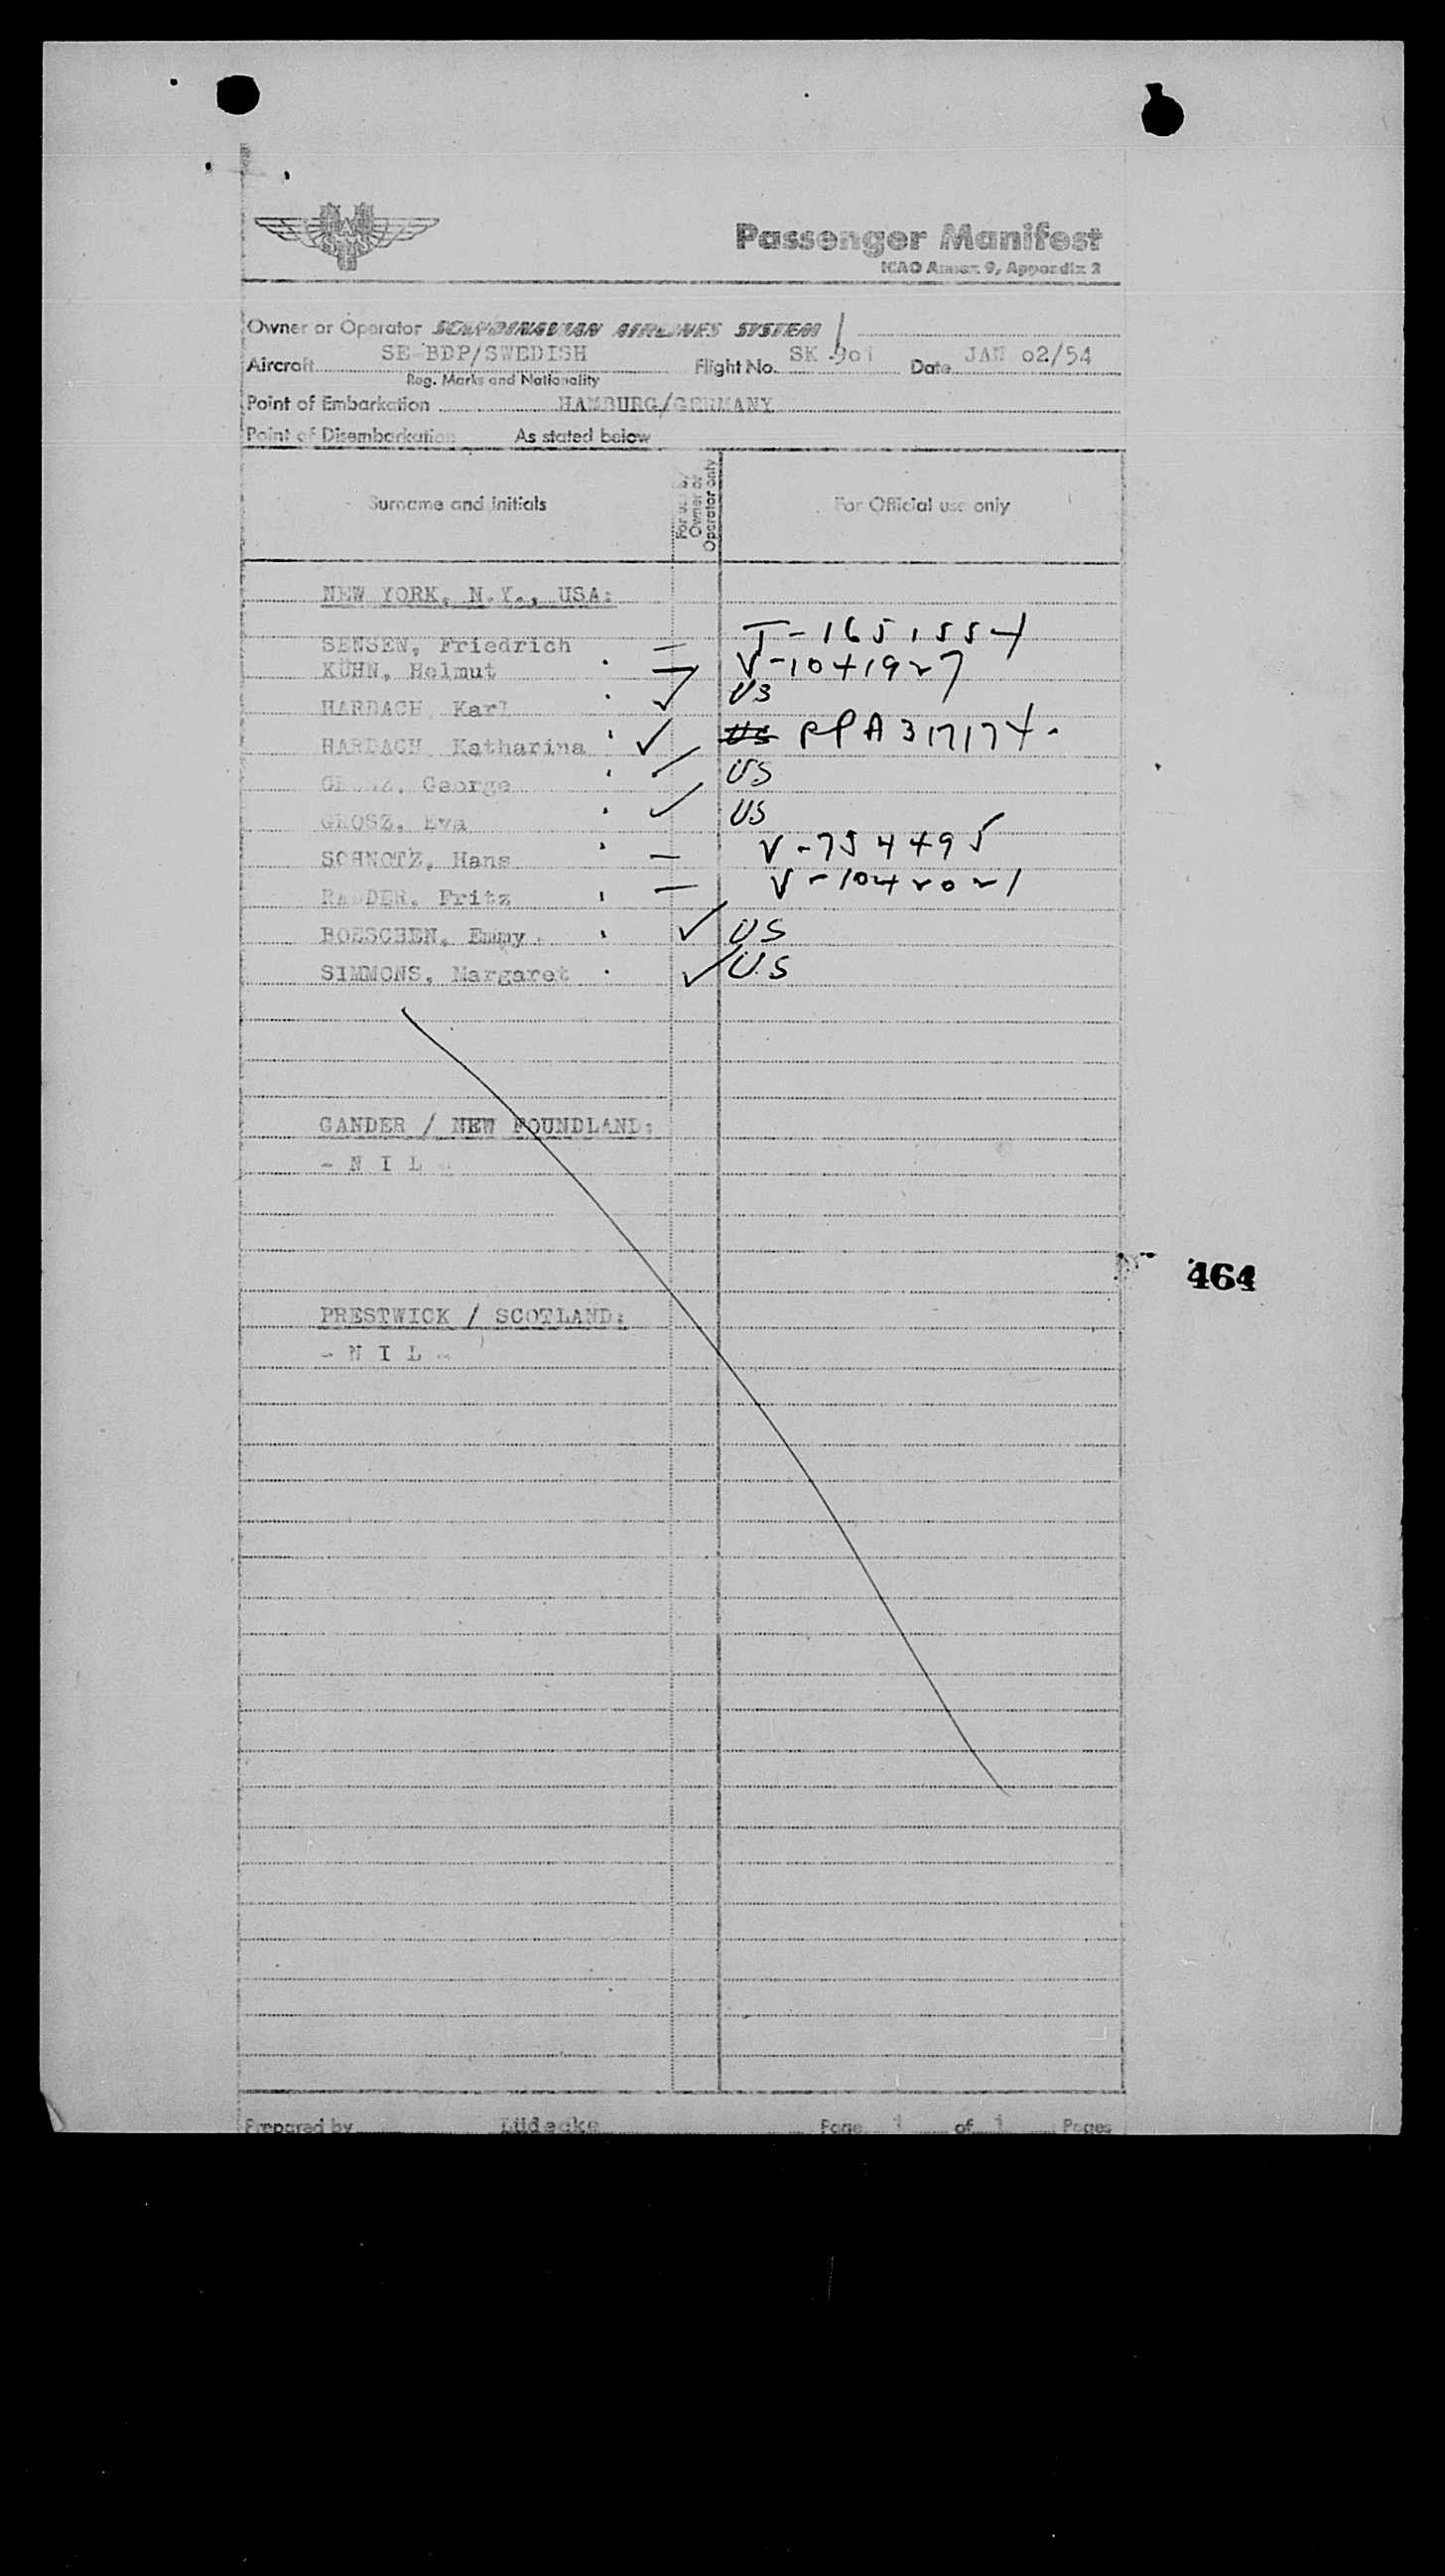 SAS
Passenger Manifest
ICAO Annex 9, Appendix 2
Owner or Operator SCANDINAVIAN AIRLINES SYSTEM
Aircraft SE-BDP/SWEDISH Flight No. SK 901 Date JAN 02/54
Reg. Marks and Nationality
Point of Embarkation HAMBURG/GERMANY
Point of Disembarkation As stated below
Surname and initials For use by Owner or Operator only For Official use only
NEW YORK, N.Y., USA:
SENSEN, Friedrich — T-1651554
KÜHN, Helmut — V-1041927
HARDACH, Karl ✓ US
HARDACH, Katharina ✓ US PPA317174.
GROSZ, George ✓ US
GROSZ, Eva ✓ US
SCHNOTZ, Hans — V-754495
Fritz — V-1042021
BOESCHEN, Emmy ✓ US
SIMMONS, Margaret ✓ U.S
GANDER / NEW FOUNDLAND:
- N I L -
464
PRESTWICK / SCOTLAND:
- N I L -
Prepared by Lüdecke Page 1 of 1 Pages